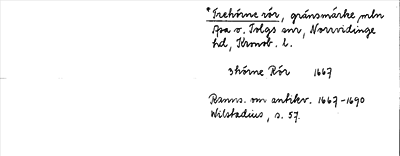 *Trehörne rör, gränsmärke mln
Asa o. Tolgs snr, Norrvidinge
hd, Kronob. l.
3hörne Rör 1667
Ranns. om antikv. 1667-1690
Wilstadius, s. 57.